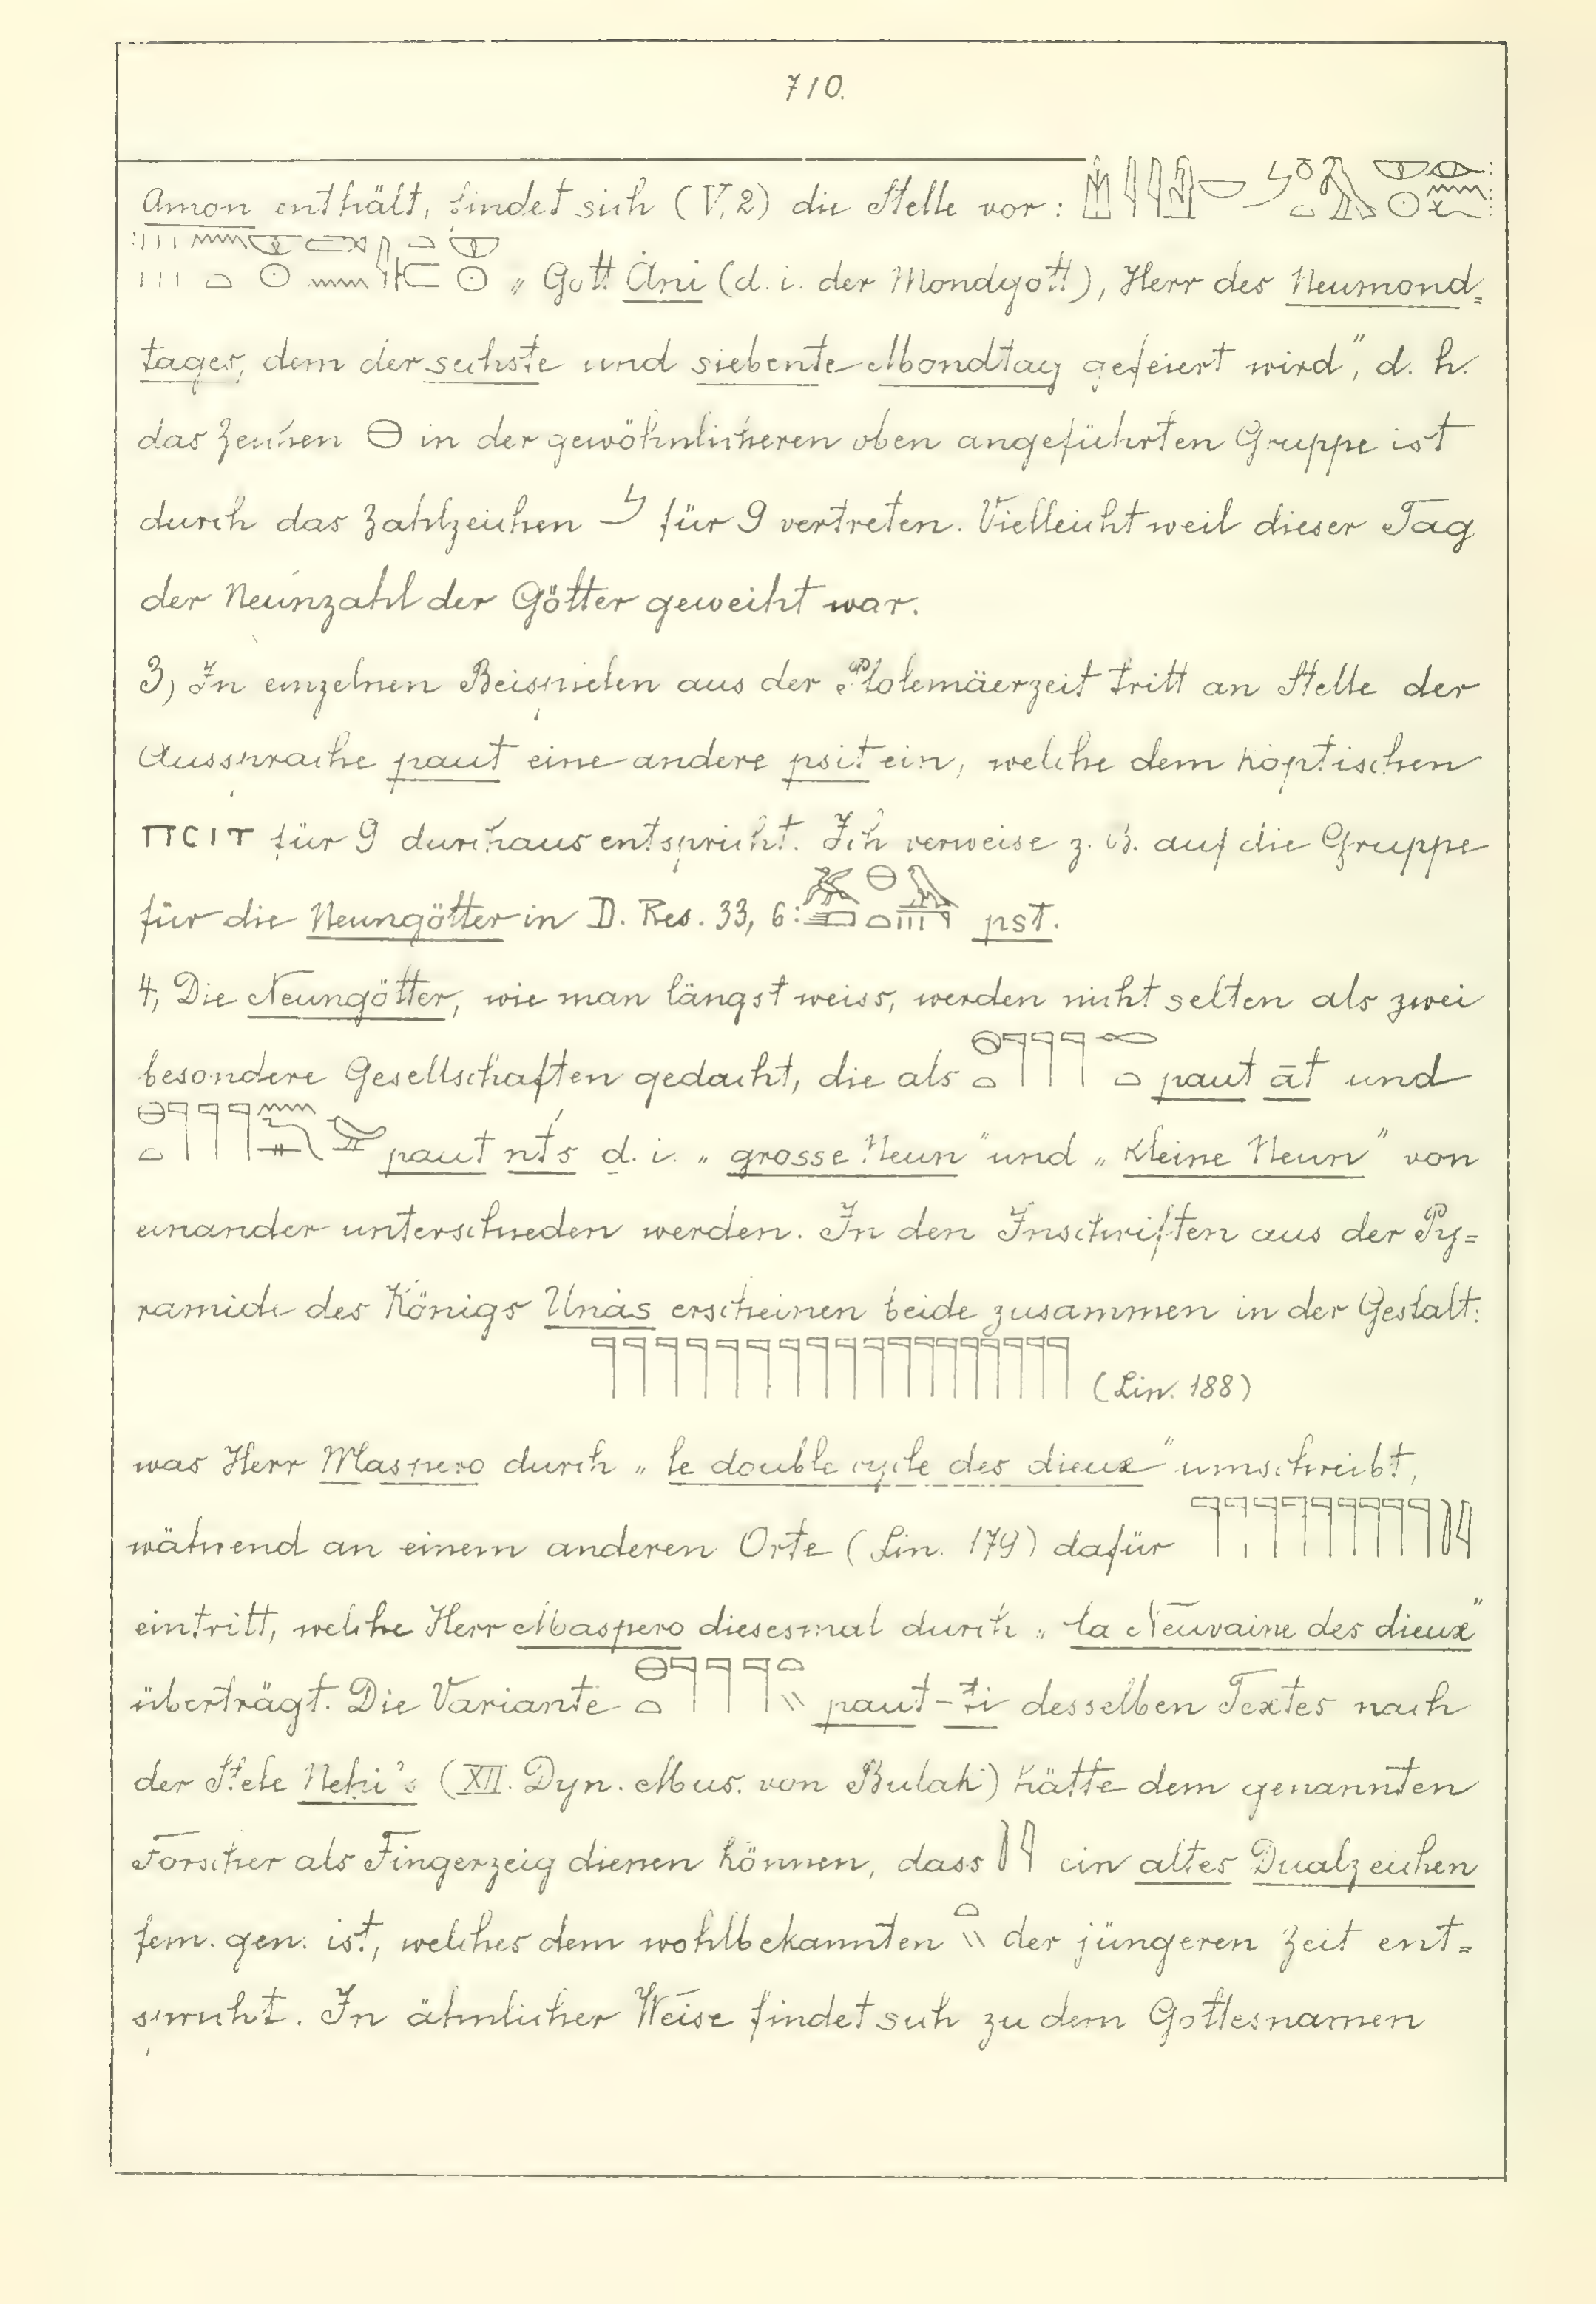 710.
Amon enthält, findet sich (V, 2) die Stelle vor:
„Gott Āni (d. i. der Mondgott), Herr des Neumond-
tages, dem der sechste und siebente Mondtag gefeiert wird", d. h.
das Zeichen in der gewöhnlicheren oben angeführten Gruppe ist
durch das Zahlzeichen für 9 vertreten. Vielleicht weil dieser Tag
der Neunzahl der Götter geweiht war.
3, In einzelnen Beispielen aus der Ptolemäerzeit tritt an Stelle der
Aussprache paut eine andere psit ein, welche dem koptischen
ⲡⲥⲓⲧ für 9 durchaus entspricht. Ich verweise z. B. auf die Gruppe
für die Neungötter in D. Res. 33, 6: pst.
4, Die Neungötter, wie man längst weiss, werden nicht selten als zwei
besondere Gesellschaften gedacht, die als paut āt und
paut nt́s d. i. „grosse Neun" und „kleine Neun" von
einander unterschieden werden. In den Inschriften aus der Py-
ramide des Königs Unás erscheinen beide zusammen in der Gestalt:
(Lin. 188)
was Herr Maspero durch „le double cycle des dieux" umschreibt,
während an einem anderen Orte (Lin. 179) dafür
eintritt, welche Herr Maspero diesesmal durch „la Neuvaine des dieux"
überträgt. Die Variante paut-ti desselben Textes nach
der Stele Nehi's (XII. Dyn. Mus. von Bulak) hätte dem genannten
Forscher als Fingerzeig dienen können, dass ein altes Dualzeichen
fem. gen. ist, welches dem wohlbekannten der jüngeren Zeit ent-
spricht. In ähnlicher Weise findet sich zu dem Gottesnamen